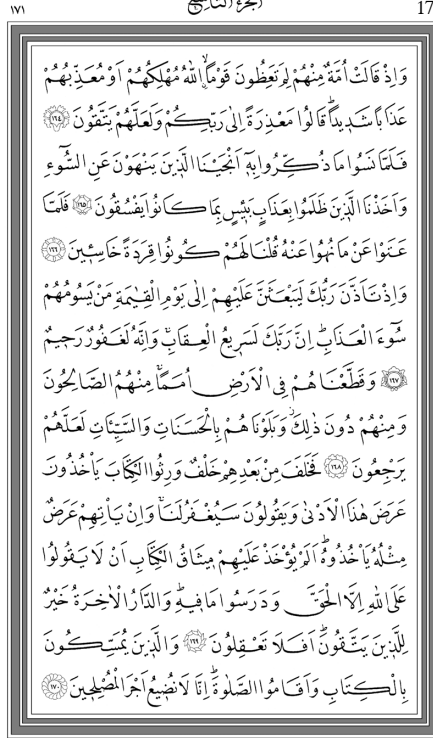 ١٧١ الجزء التاسع 17
وَاِذْ قَالَتْ اُمَّةٌ مِنْهُمْ لِمَ تَعِظُونَ قَوْمًاۙ اللّٰهُ مُهْلِكُهُمْ اَوْ مُعَذِّبُهُمْ
عَذَابًا شَد۪يدًاۜ قَالُوا مَعْذِرَةً اِلٰى رَبِّكُمْ وَلَعَلَّهُمْ يَتَّقُونَ ﴿١٦٤﴾
فَلَمَّا نَسُوا مَا ذُكِّرُوا بِه۪ٓ اَنْجَيْنَا الَّذ۪ينَ يَنْهَوْنَ عَنِ السُّٓوءِ
وَاَخَذْنَا الَّذ۪ينَ ظَلَمُوا بِعَذَابٍ بَـ۪ٔيسٍ بِمَا كَانُوا يَفْسُقُونَ ﴿١٦٥﴾ فَلَمَّا
عَتَوْا عَنْ مَا نُهُوا عَنْهُ قُلْنَا لَهُمْ كُونُوا قِرَدَةً خَاسِـ۪ٔينَ ﴿١٦٦﴾
وَاِذْ تَاَذَّنَ رَبُّكَ لَيَبْعَثَنَّ عَلَيْهِمْ اِلٰى يَوْمِ الْقِيٰمَةِ مَنْ يَسُومُهُمْ
سُٓوءَ الْعَذَابِۜ اِنَّ رَبَّكَ لَسَر۪يعُ الْعِقَابِۚ وَاِنَّهُ لَغَفُورٌ رَح۪يمٌ
﴿١٦٧﴾ وَقَطَّعْنَاهُمْ فِي الْاَرْضِ اُمَمًاۚ مِنْهُمُ الصَّالِحُونَ
وَمِنْهُمْ دُونَ ذٰلِكَۘ وَبَلَوْنَاهُمْ بِالْحَسَنَاتِ وَالسَّيِّـَٔاتِ لَعَلَّهُمْ
يَرْجِعُونَ ﴿١٦٨﴾ فَخَلَفَ مِنْ بَعْدِهِمْ خَلْفٌ وَرِثُوا الْكِتَابَ يَأْخُذُونَ
عَرَضَ هٰذَا الْاَدْنٰى وَيَقُولُونَ سَيُغْفَرُ لَنَاۚ وَاِنْ يَأْتِهِمْ عَرَضٌ
مِثْلُهُ يَأْخُذُوهُۜ اَلَمْ يُؤْخَذْ عَلَيْهِمْ م۪يثَاقُ الْكِتَابِ اَنْ لَا يَقُولُوا
عَلَى اللّٰهِ اِلَّا الْحَقَّ وَدَرَسُوا مَا ف۪يهِۜ وَالدَّارُ الْاٰخِرَةُ خَيْرٌ
لِلَّذ۪ينَ يَتَّقُونَۜ اَفَلَا تَعْقِلُونَ ﴿١٦٩﴾ وَالَّذ۪ينَ يُمَسِّكُونَ
بِالْكِتَابِ وَاَقَامُوا الصَّلٰوةَۜ اِنَّا لَا نُض۪يعُ اَجْرَ الْمُصْلِح۪ينَ ﴿١٧٠﴾